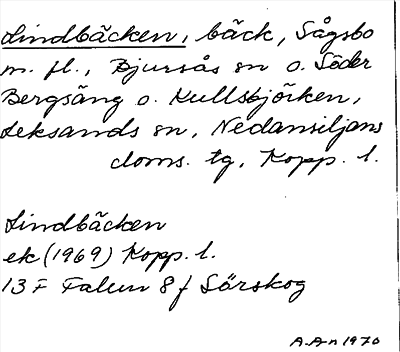 Lindbäcken, bäck, Sågsbo
m. fl., Bjursås sn o. Söder
Bergsäng o. Kullsbjörken,
Leksands sn, Nedansiljans
doms. tg, Kopp. l.
Lindbäcken
ek (1969) Kopp. l.
13 F Falun 8 f Särskog
A.A-n 1970